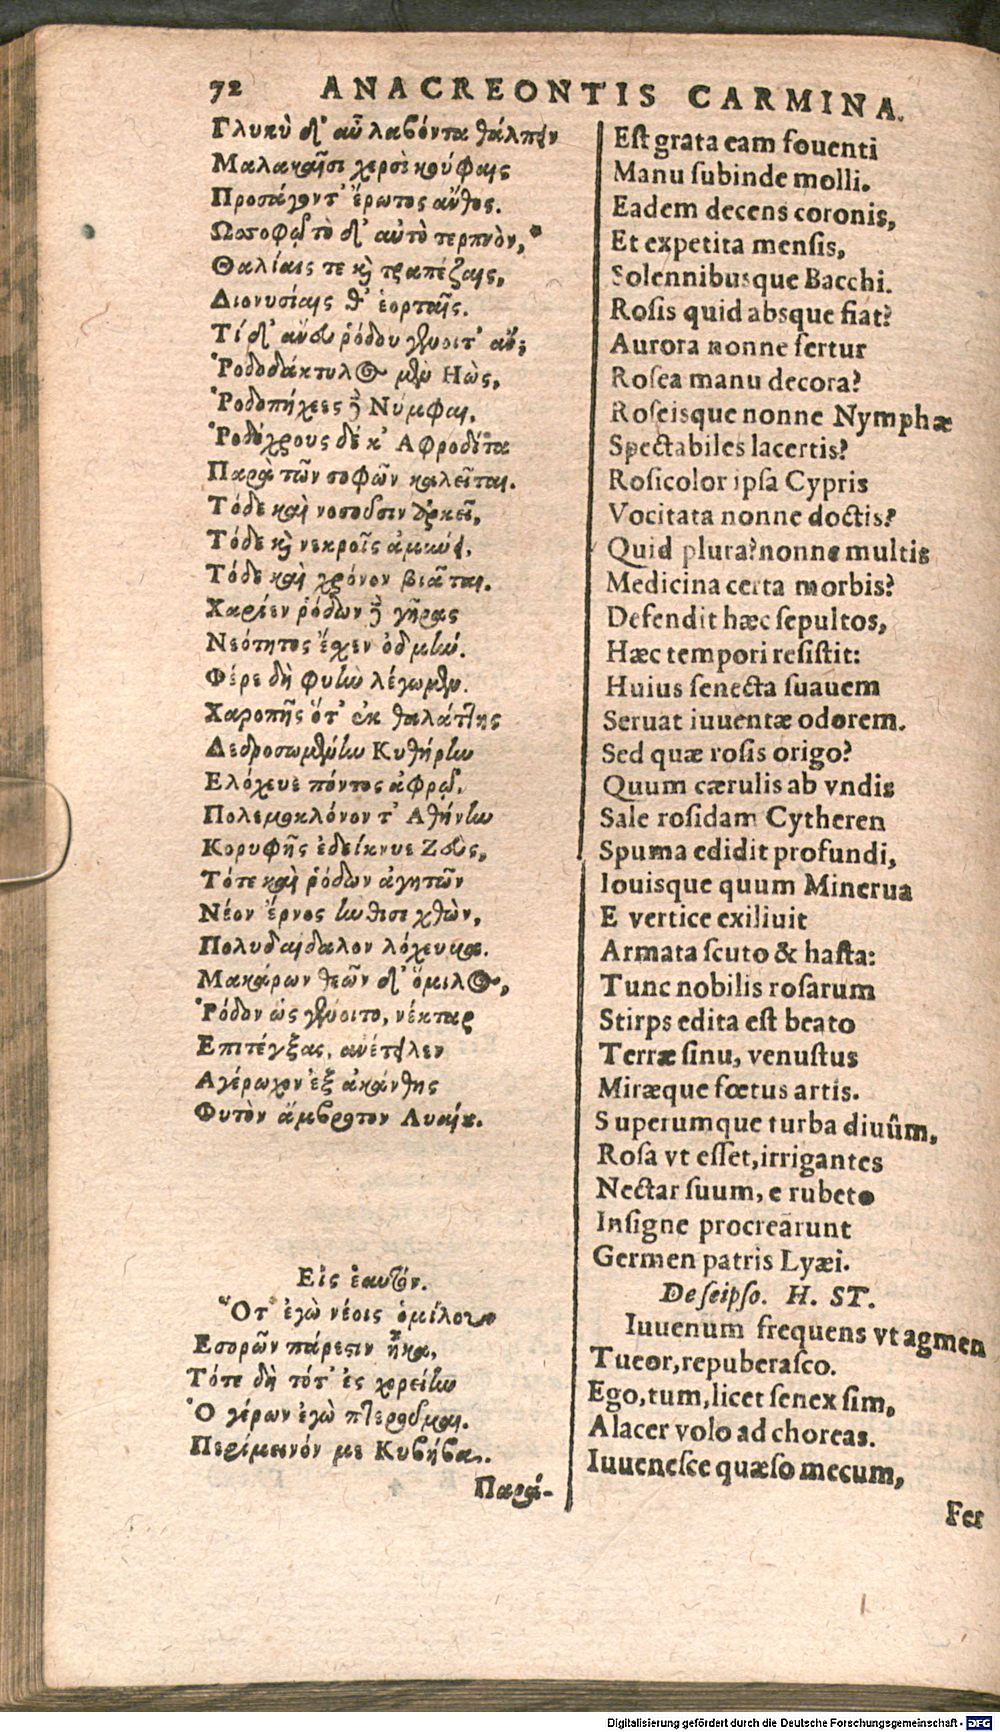 72 ANACREONTIS CARMINA.
Γλυκὺ δ' αὖ λαβόντα θάλπειν
Μαλακαῖσι χερσὶ κούφαις
Προσάγοντ' ἔρωτος ἄνθος.
τὸ δ' αὐτὸ τερπνὸν,*
Θαλίαις τε καὶ τραπέζαις,
Διονυσίαις θ' ἑορταῖς.
Τί δ' ἄνευ ῥόδου γένοιτ' ἄν;
Ῥοδοδάκτυλος μὲν Ηὼς,
Ῥοδοπήχεες δὲ Νύμφαι,
Ῥοδόχρους δέ κ' Αφροδίτα
Παρὰ τῶν σοφῶν καλεῖται.
Τόδε καὶ νοσοῦσιν ἀρκεῖ,
Τόδε καὶ νεκροῖς ἀμύνει,
Τόδε καὶ χρόνον βιᾶται.
Χαρίεν ῥόδων δὲ γῆρας
Νεότητος ἔσχεν ὀδμήν.
Φέρε δὴ φυὴν λέγωμεν.
Χαροπῆς ὅτ' ἐκ θαλάττης
Δεδροσωμένην Κυθήρην
Ελόχευε πόντος ἀφρῷ,
Πολεμοκλόνον τ' Αθήνην
Κορυφῆς ἐδείκνυε Ζεὺς,
Τότε καὶ ῥόδων ἀγητῶν
Νέον ἔρνος ἤνθισε χθὼν,
Πολυδαίδαλον λόχευμα.
Μακάρων θεῶν δ' ὅμιλος,
Ῥόδον ὡς γένοιτο, νέκταρ
Επιτέγξας, ἀνέτειλεν
Αγέρωχον ἐξ ἀκάνθης
Φυτὸν ἄμβροτον Λυαίου.
Εἰς ἑαυτόν.
Ὅτ' ἐγὼ νέοις ὁμίλουν
Εσορῶν πάρεσιν ἥβα,
Τότε δὴ τότ' ἐς χορείην
Ὁ γέρων ἐγὼ πτεροῦμαι.
Περίμεινόν με Κυβήβα.
Παρά-
Est grata eam fouenti
Manu subinde molli.
Eadem decens coronis,
Et expetita mensis,
Solennibusque Bacchi.
Rosis quid absque fiat?
Aurora nonne fertur
Rosea manu decora?
Roseisque nonne Nymphæ
Spectabiles lacertis?
Rosicolor ipsa Cypris
Vocitata nonne doctis?
Quid plura? nonne multis
Medicina certa morbis?
Defendit hæc sepultos,
Hæc tempori resistit:
Huius senecta suauem
Seruat iuuentæ odorem.
Sed quæ rosis origo?
Quum cærulis ab vndis
Sale rosidam Cytheren
Spuma edidit profundi,
Iouisque quum Minerua
E vertice exiliuit
Armata scuto & hasta:
Tunc nobilis rosarum
Stirps edita est beato
Terræ sinu, venustus
Miræque fœtus artis.
Superumque turba diuûm,
Rosa vt esset, irrigantes
Nectar suum, e rubeto
Insigne procrearunt
Germen patris Lyæi.
De seipso. H. ST.
Iuuenum frequens vt agmen
Tueor, repuberasco.
Ego, tum, licet senex sim,
Alacer volo ad choreas.
Iuuenesce quæso mecum,
Fer
Digitalisierung gefördert durch die Deutsche Forschungsgemeinschaft - DFG